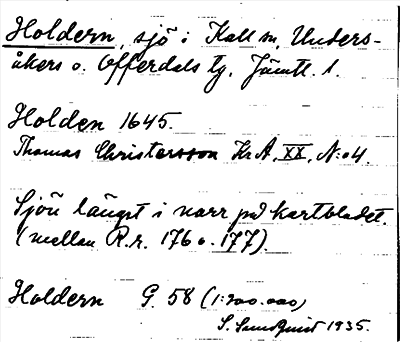 Holdern, sjö i Kall sn, Unders-
åkers o. Offerdals tg, Jämtl. l.
Holden 1645.
Thomas Christersson Kr A, XX, N:o 4.
Sjön längst i norr på kartbladet.
(mellan R.r. 176 o. 177).
Holdern G. 58 (1:200.000)
S. Sundquist 1935.